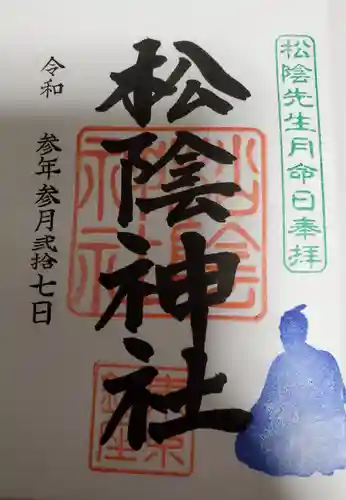 松陰先生月命日奉拝
松陰神社
松陰神社
東京
鎮座
令和
参年参月弐拾七日